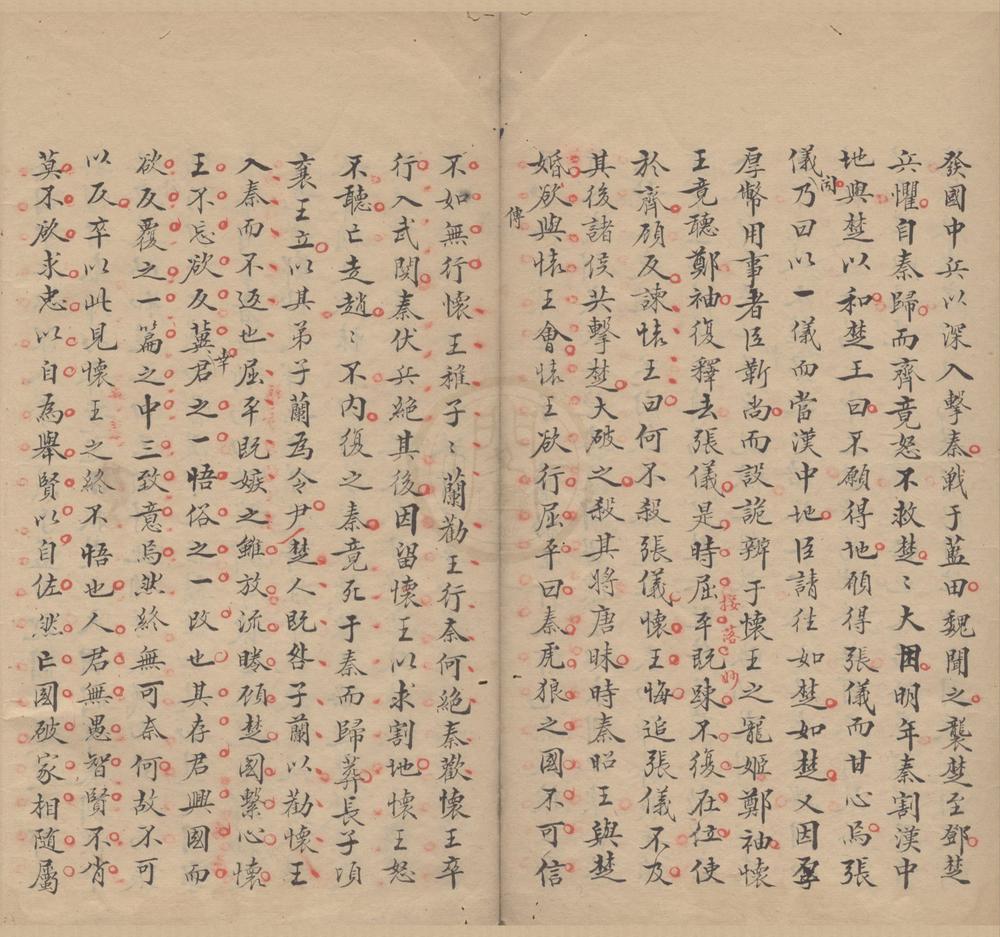 發國中兵以深入擊秦戰于藍田魏聞之襲楚至鄧楚
兵懼自秦歸而齊竟怒不救楚〻大困明年秦割漢中
地與楚以和楚王曰不願得地願得張儀而甘心焉張
儀聞乃曰以一儀而當漢中地臣請往如楚如楚又因
厚幣用事者臣靳尚而設詭辨于懷王之寵姬鄭袖懷
王竟聽鄭袖復釋去張儀是時屈平既踈不復在位使
接落妙
於齊願反諫懷王曰何不殺張儀懷王悔追張儀不及
其後諸侯共擊楚大破之殺其將唐昧時秦昭王與楚
婚欲與懷王會懷王欲行屈平曰秦虎狼之國不可信
傳
不如無行懷王稚子〻蘭勸王行奈何絕秦歡懷王卒
行入武関秦伏兵絕其後因留懷王以求割地懷王怒
不聽亡走趙〻不內復之秦竟死于秦而歸葬長子頃
襄王立以其弟子蘭為令尹楚人既咎子蘭以勸懷王
入秦而不返也屈平既嫉之雖放流睠顧楚國繫心懷
王不忘欲反冀幸君之一悟俗之一改也其存君興國而
欲反覆之一篇之中三致意焉然終無可奈何故不可
以反卒以此見懷王之終不悟也人君無愚智賢不肖
莫不欲求忠以自為舉賢以自佐然亡國破家相隨屬